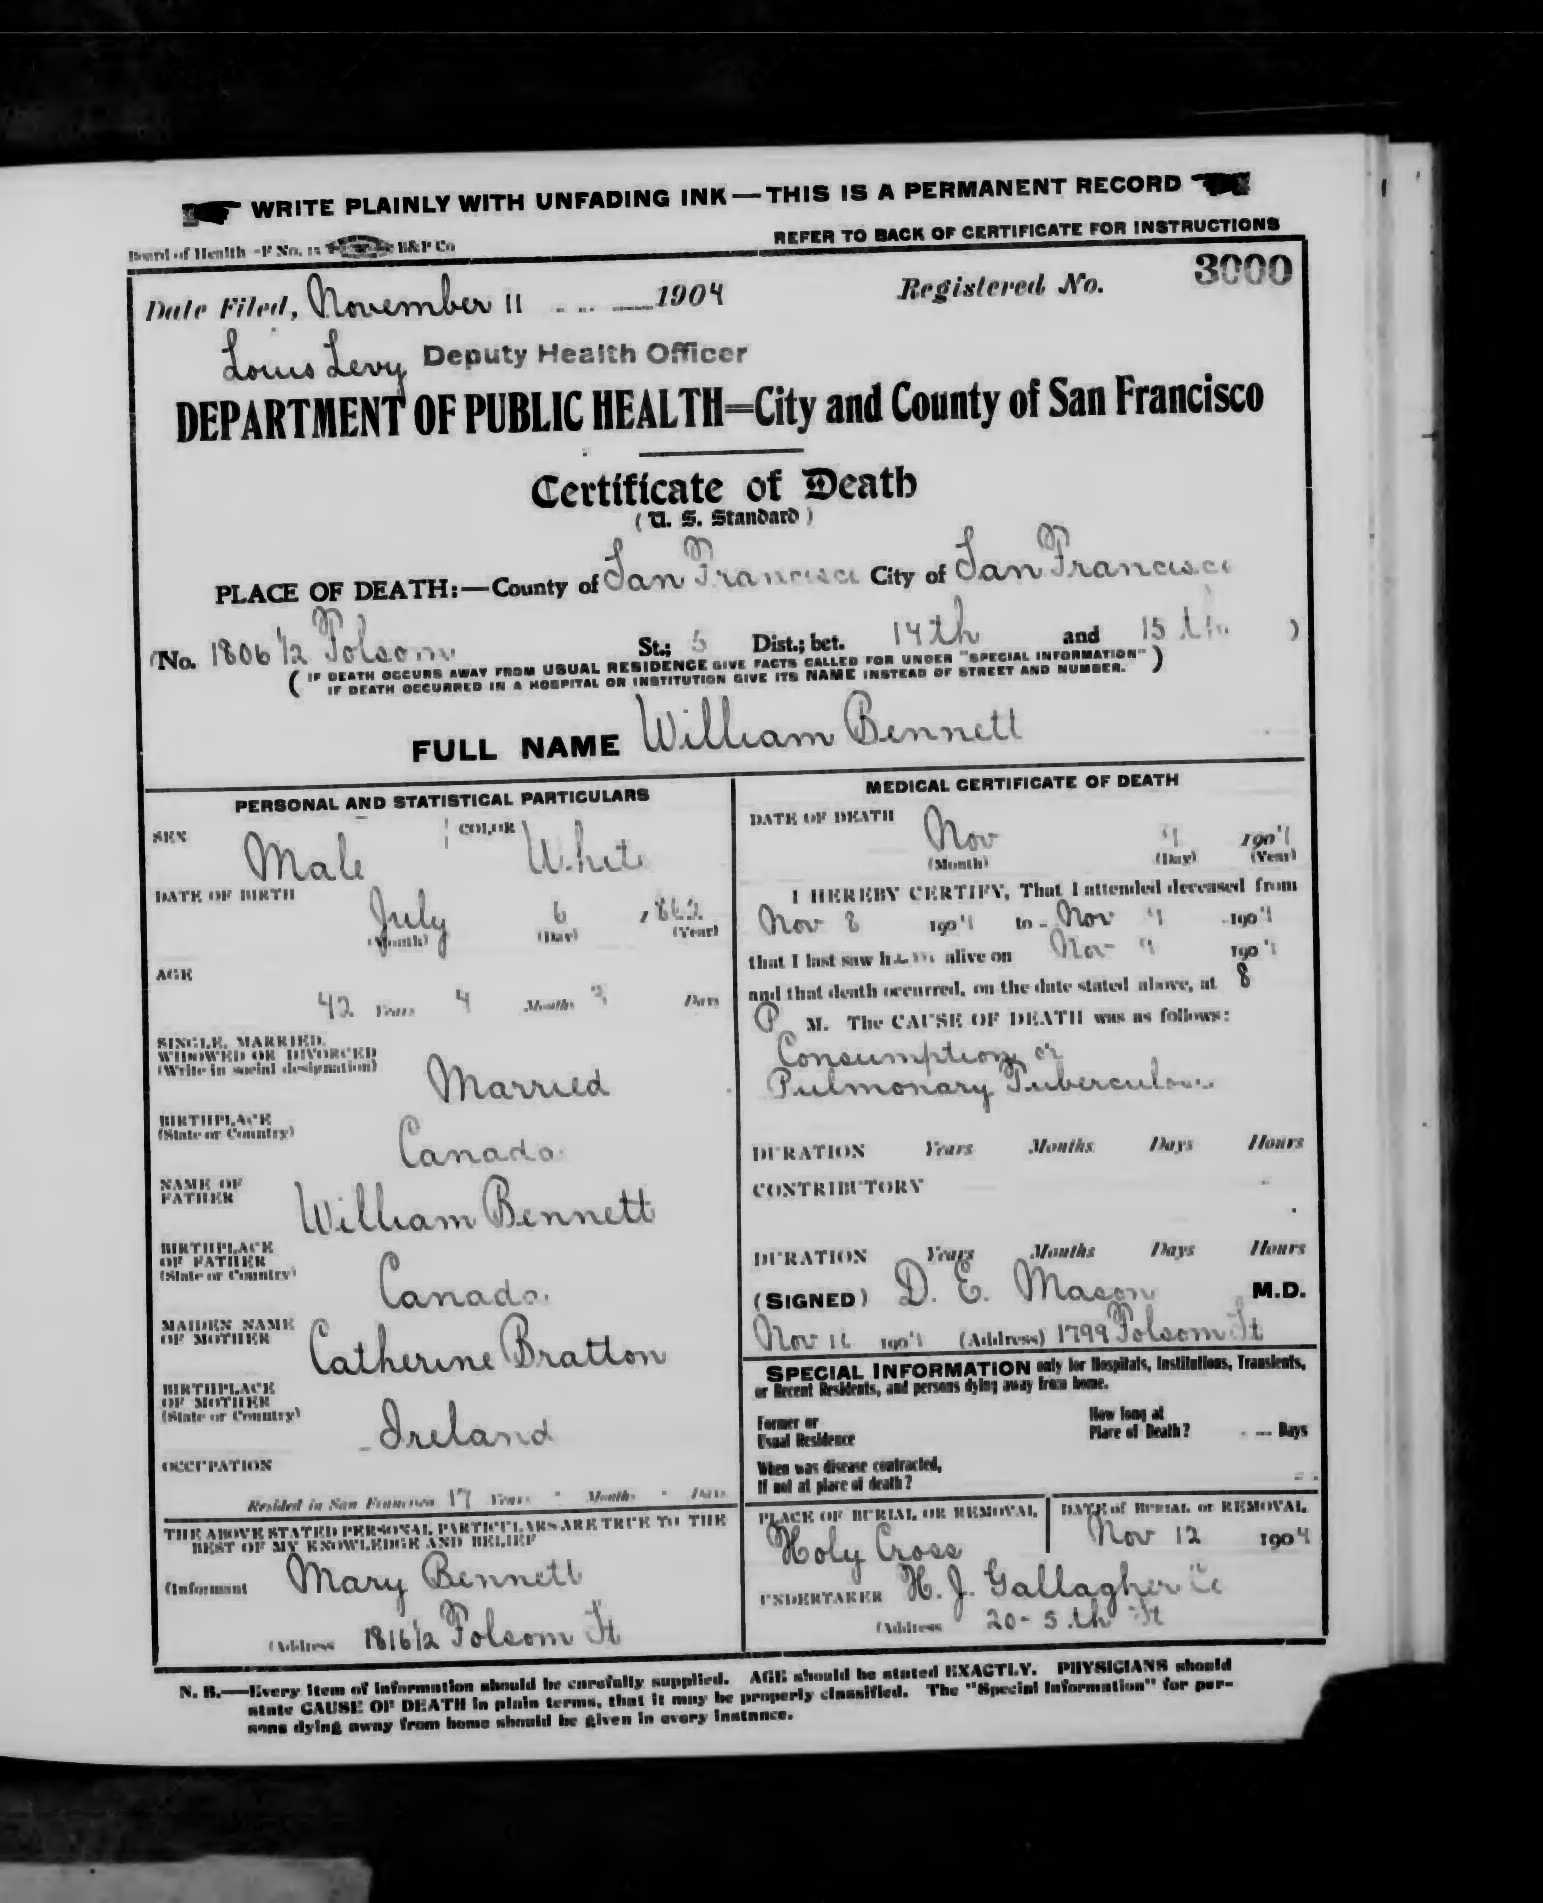 WRITE PLAINLY WITH UNFADING INK — THIS IS A PERMANENT RECORD
Board of Health -F No. 15 B&P Co
REFER TO BACK OF CERTIFICATE FOR INSTRUCTIONS
Date Filed, November 11 1904 Registered No. 3000
Louis Levy Deputy Health Officer
DEPARTMENT OF PUBLIC HEALTH=City and County of San Francisco
Certificate of Death
(U. S. Standard)
PLACE OF DEATH:—County of San Francisco City of San Francisco
(No. 1806 1/2 Folsom St.; 5 Dist.; bet. 14th and 15th )
( IF DEATH OCCURS AWAY FROM USUAL RESIDENCE GIVE FACTS CALLED FOR UNDER "SPECIAL INFORMATION" )
IF DEATH OCCURRED IN A HOSPITAL OR INSTITUTION GIVE ITS NAME INSTEAD OF STREET AND NUMBER.
FULL NAME William Bennett
PERSONAL AND STATISTICAL PARTICULARS
SEX Male COLOR White
DATE OF BIRTH
July 6 1862
(Month) (Day) (Year)
AGE
42 Years 4 Months 3 Days
SINGLE, MARRIED,
WIDOWED OR DIVORCED
(Write in social designation)
Married
BIRTHPLACE
(State or Country)
Canada
NAME OF
FATHER
William Bennett
BIRTHPLACE
OF FATHER
(State or Country)
Canada
MAIDEN NAME
OF MOTHER
Catherine Bratton
BIRTHPLACE
OF MOTHER
(State or Country)
Ireland
OCCUPATION
Resided in San Francisco 17 Years Months Days
THE ABOVE STATED PERSONAL PARTICULARS ARE TRUE TO THE
BEST OF MY KNOWLEDGE AND BELIEF
(Informant Mary Bennett
(Address 1816 1/2 Folsom St
MEDICAL CERTIFICATE OF DEATH
DATE OF DEATH
Nov 9 1904
(Month) (Day) (Year)
I HEREBY CERTIFY, That I attended deceased from
Nov 8 1904 to Nov 9 1904
that I last saw him alive on Nov 9 1904
and that death occurred, on the date stated above, at 8
P M. The CAUSE OF DEATH was as follows:
Consumption or
Pulmonary Tuberculosis
DURATION Years Months Days Hours
CONTRIBUTORY
DURATION Years Months Days Hours
(SIGNED) D. E. Mason M.D.
Nov 1904 (Address) 1799 Folsom St
SPECIAL INFORMATION only for Hospitals, Institutions, Transients,
or Recent Residents, and persons dying away from home.
Former or
Usual Residence
How long at
Place of Death? Days
When was disease contracted,
If not at place of death?
PLACE OF BURIAL OR REMOVAL
Holy Cross
DATE of BURIAL or REMOVAL
Nov 12 1904
UNDERTAKER H. J. Gallagher Co
(Address 20-5.th St
N. B.—Every item of information should be carefully supplied. AGE should be stated EXACTLY. PHYSICIANS should
state CAUSE OF DEATH in plain terms, that it may be properly classified. The "Special Information" for per-
sons dying away from home should be given in every instance.